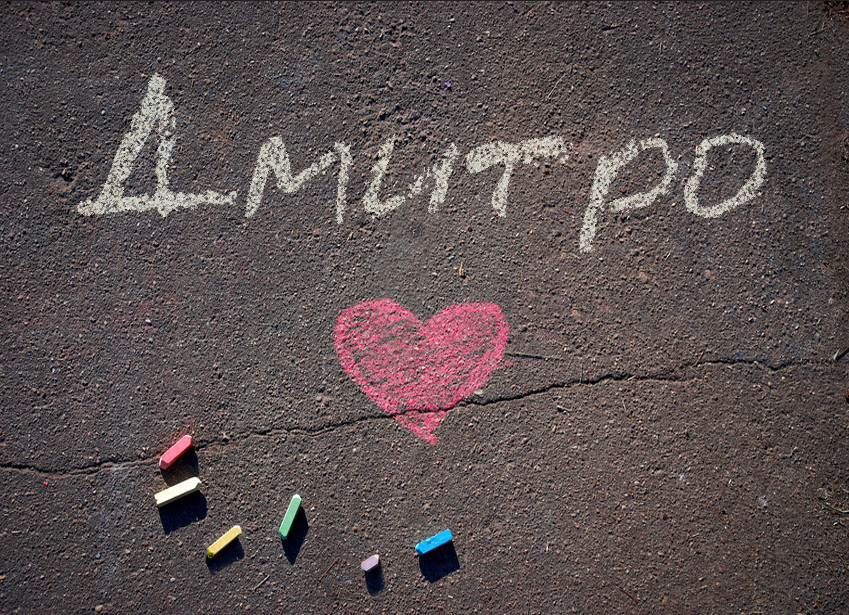 Дмитро